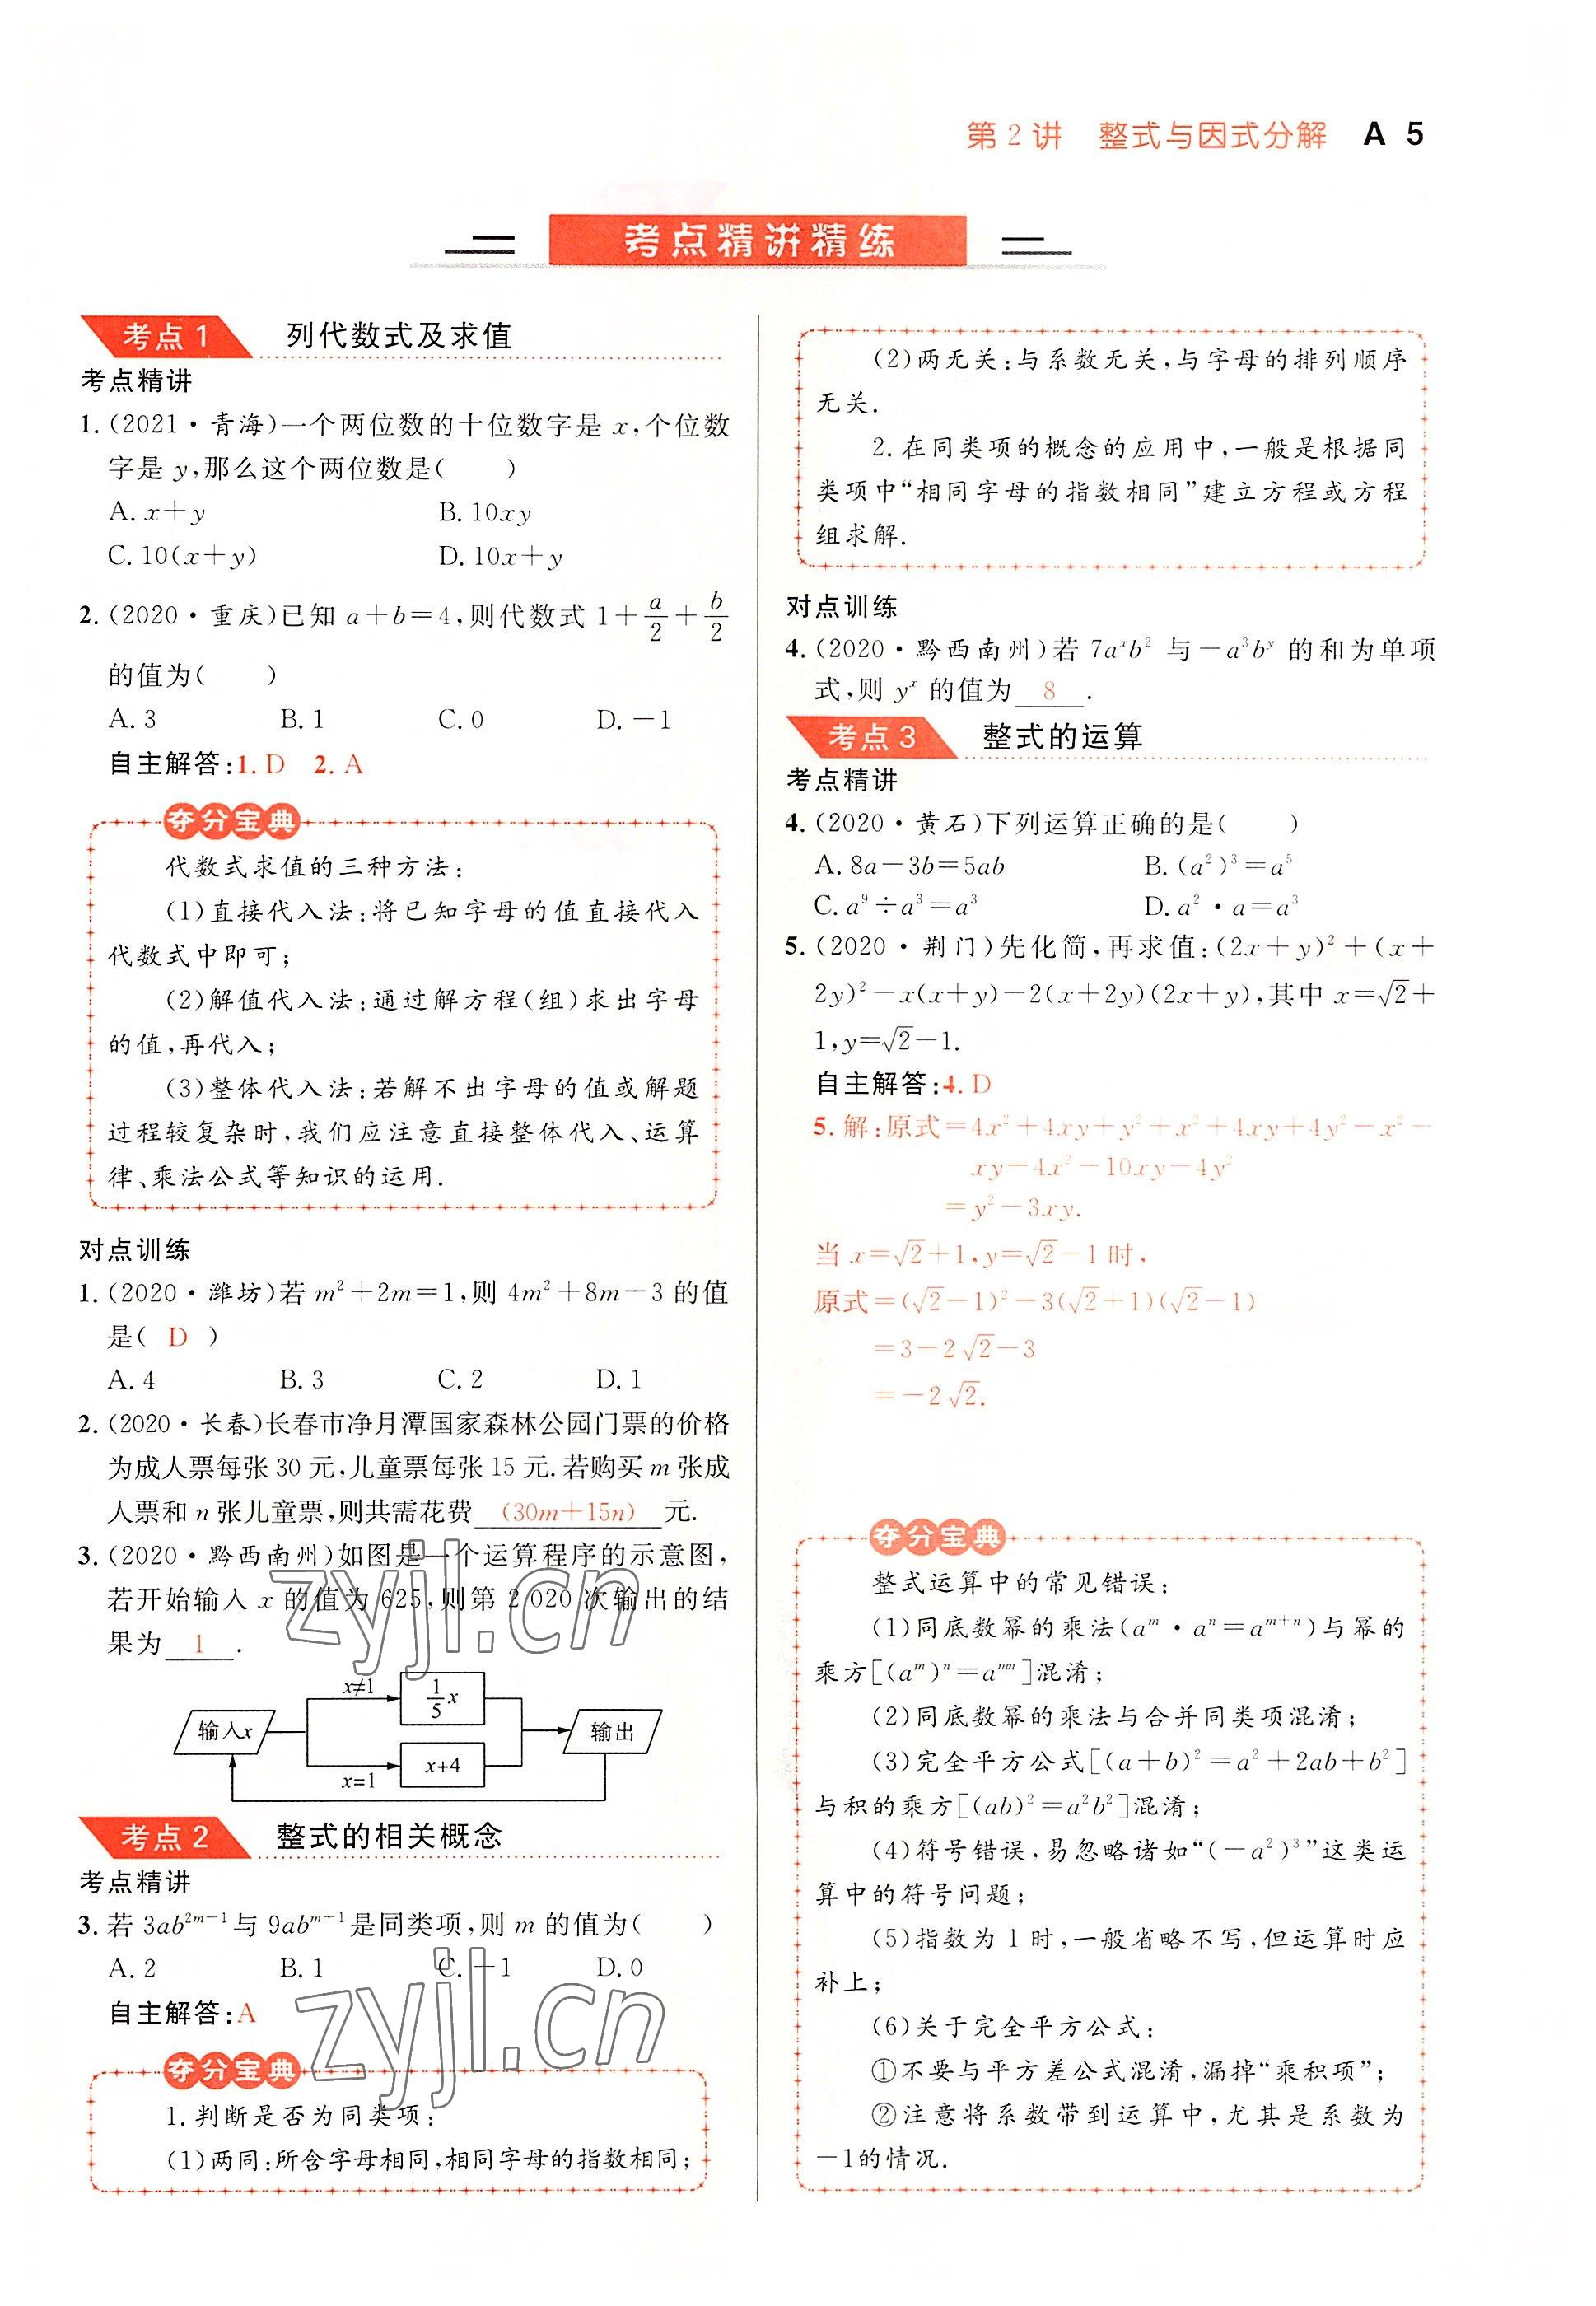 第2讲 整式与因式分解 A 5
考点精讲精练
考点1 列代数式及求值
考点精讲
1. (2021·青海)一个两位数的十位数字是 x,个位数
字是 y,那么这个两位数是( )
A. x+y B. 10xy
C. 10(x+y) D. 10x+y
2. (2020·重庆)已知 a+b=4,则代数式 1+a/2+b/2
的值为( )
A. 3 B. 1 C. 0 D. -1
自主解答:1. D 2. A
夺分宝典
代数式求值的三种方法:
(1)直接代入法:将已知字母的值直接代入
代数式中即可;
(2)解值代入法:通过解方程(组)求出字母
的值,再代入;
(3)整体代入法:若解不出字母的值或解题
过程较复杂时,我们应注意直接整体代入、运算
律、乘法公式等知识的运用.
对点训练
1. (2020·潍坊)若 m²+2m=1,则 4m²+8m-3 的值
是( D )
A. 4 B. 3 C. 2 D. 1
2. (2020·长春)长春市净月潭国家森林公园门票的价格
为成人票每张 30 元,儿童票每张 15 元. 若购买 m 张成
人票和 n 张儿童票,则共需花费 (30m+15n) 元.
3. (2020·黔西南州)如图是一个运算程序的示意图,
若开始输入 x 的值为 625,则第 2 020 次输出的结
果为 1 .
x≠1
1/5 x
输入x
输出
x+4
x=1
考点2 整式的相关概念
考点精讲
3. 若 3ab²ᵐ⁻¹与 9abᵐ⁺¹是同类项,则 m 的值为( )
A. 2 B. 1 C. -1 D. 0
自主解答:A
夺分宝典
1. 判断是否为同类项:
(1)两同:所含字母相同,相同字母的指数相同;
(2)两无关:与系数无关,与字母的排列顺序
无关.
2. 在同类项的概念的应用中,一般是根据同
类项中“相同字母的指数相同”建立方程或方程
组求解.
对点训练
4. (2020·黔西南州)若 7aˣb² 与-a³bʸ 的和为单项
式,则 yˣ 的值为 8 .
考点3 整式的运算
考点精讲
4. (2020·黄石)下列运算正确的是( )
A. 8a-3b=5ab B. (a²)³=a⁵
C. a⁹÷a³=a³ D. a²·a=a³
5. (2020·荆门)先化简,再求值:(2x+y)²+(x+
2y)²-x(x+y)-2(x+2y)(2x+y),其中 x=√2+
1,y=√2-1.
自主解答:4. D
5. 解:原式=4x²+4xy+y²+x²+4xy+4y²-x²-
xy-4x²-10xy-4y²
=y²-3xy.
当 x=√2+1,y=√2-1 时,
原式=(√2-1)²-3(√2+1)(√2-1)
=3-2√2-3
=-2√2.
夺分宝典
整式运算中的常见错误:
(1)同底数幂的乘法(aᵐ·aⁿ=aᵐ⁺ⁿ)与幂的
乘方[(aᵐ)ⁿ=aᵐⁿ]混淆;
(2)同底数幂的乘法与合并同类项混淆;
(3)完全平方公式[(a+b)²=a²+2ab+b²]
与积的乘方[(ab)²=a²b²]混淆;
(4)符号错误,易忽略诸如“(-a²)³”这类运
算中的符号问题;
(5)指数为 1 时,一般省略不写,但运算时应
补上;
(6)关于完全平方公式:
①不要与平方差公式混淆,漏掉“乘积项”;
②注意将系数带到运算中,尤其是系数为
-1的情况.
zyjl.cn
zyjl.cn